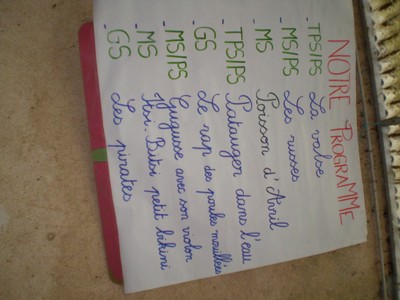 NOTRE PROGRAMME
- TPS/PS La valse
- MS/PS Les russes
- MS Poisson d'Avril
- TPS/PS Patauger dans l'eau
- GS Le rap des poules mouillées
- MS/PS Guguse avec son violon
- MS Itsi. Bitsi petit bikini
- GS Les pirates